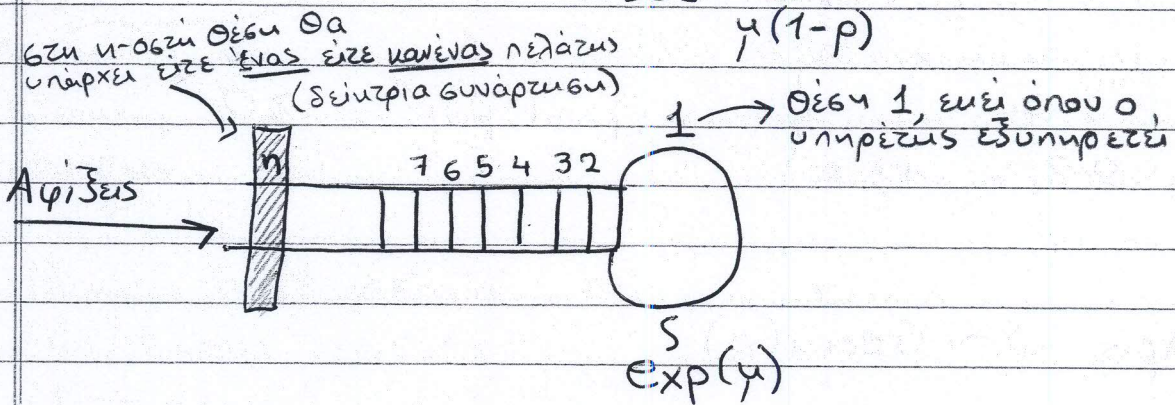 μ(1-ρ)
στη n-οστή θέση θα
υπάρχει είτε ένας είτε κανένας πελάτης
(δείκτρια συνάρτηση)
1 → θέση 1, εκεί όπου ο
υπηρέτης εξυπηρετεί
Αφίξεις
n 7 6 5 4 3 2
S
exp(μ)